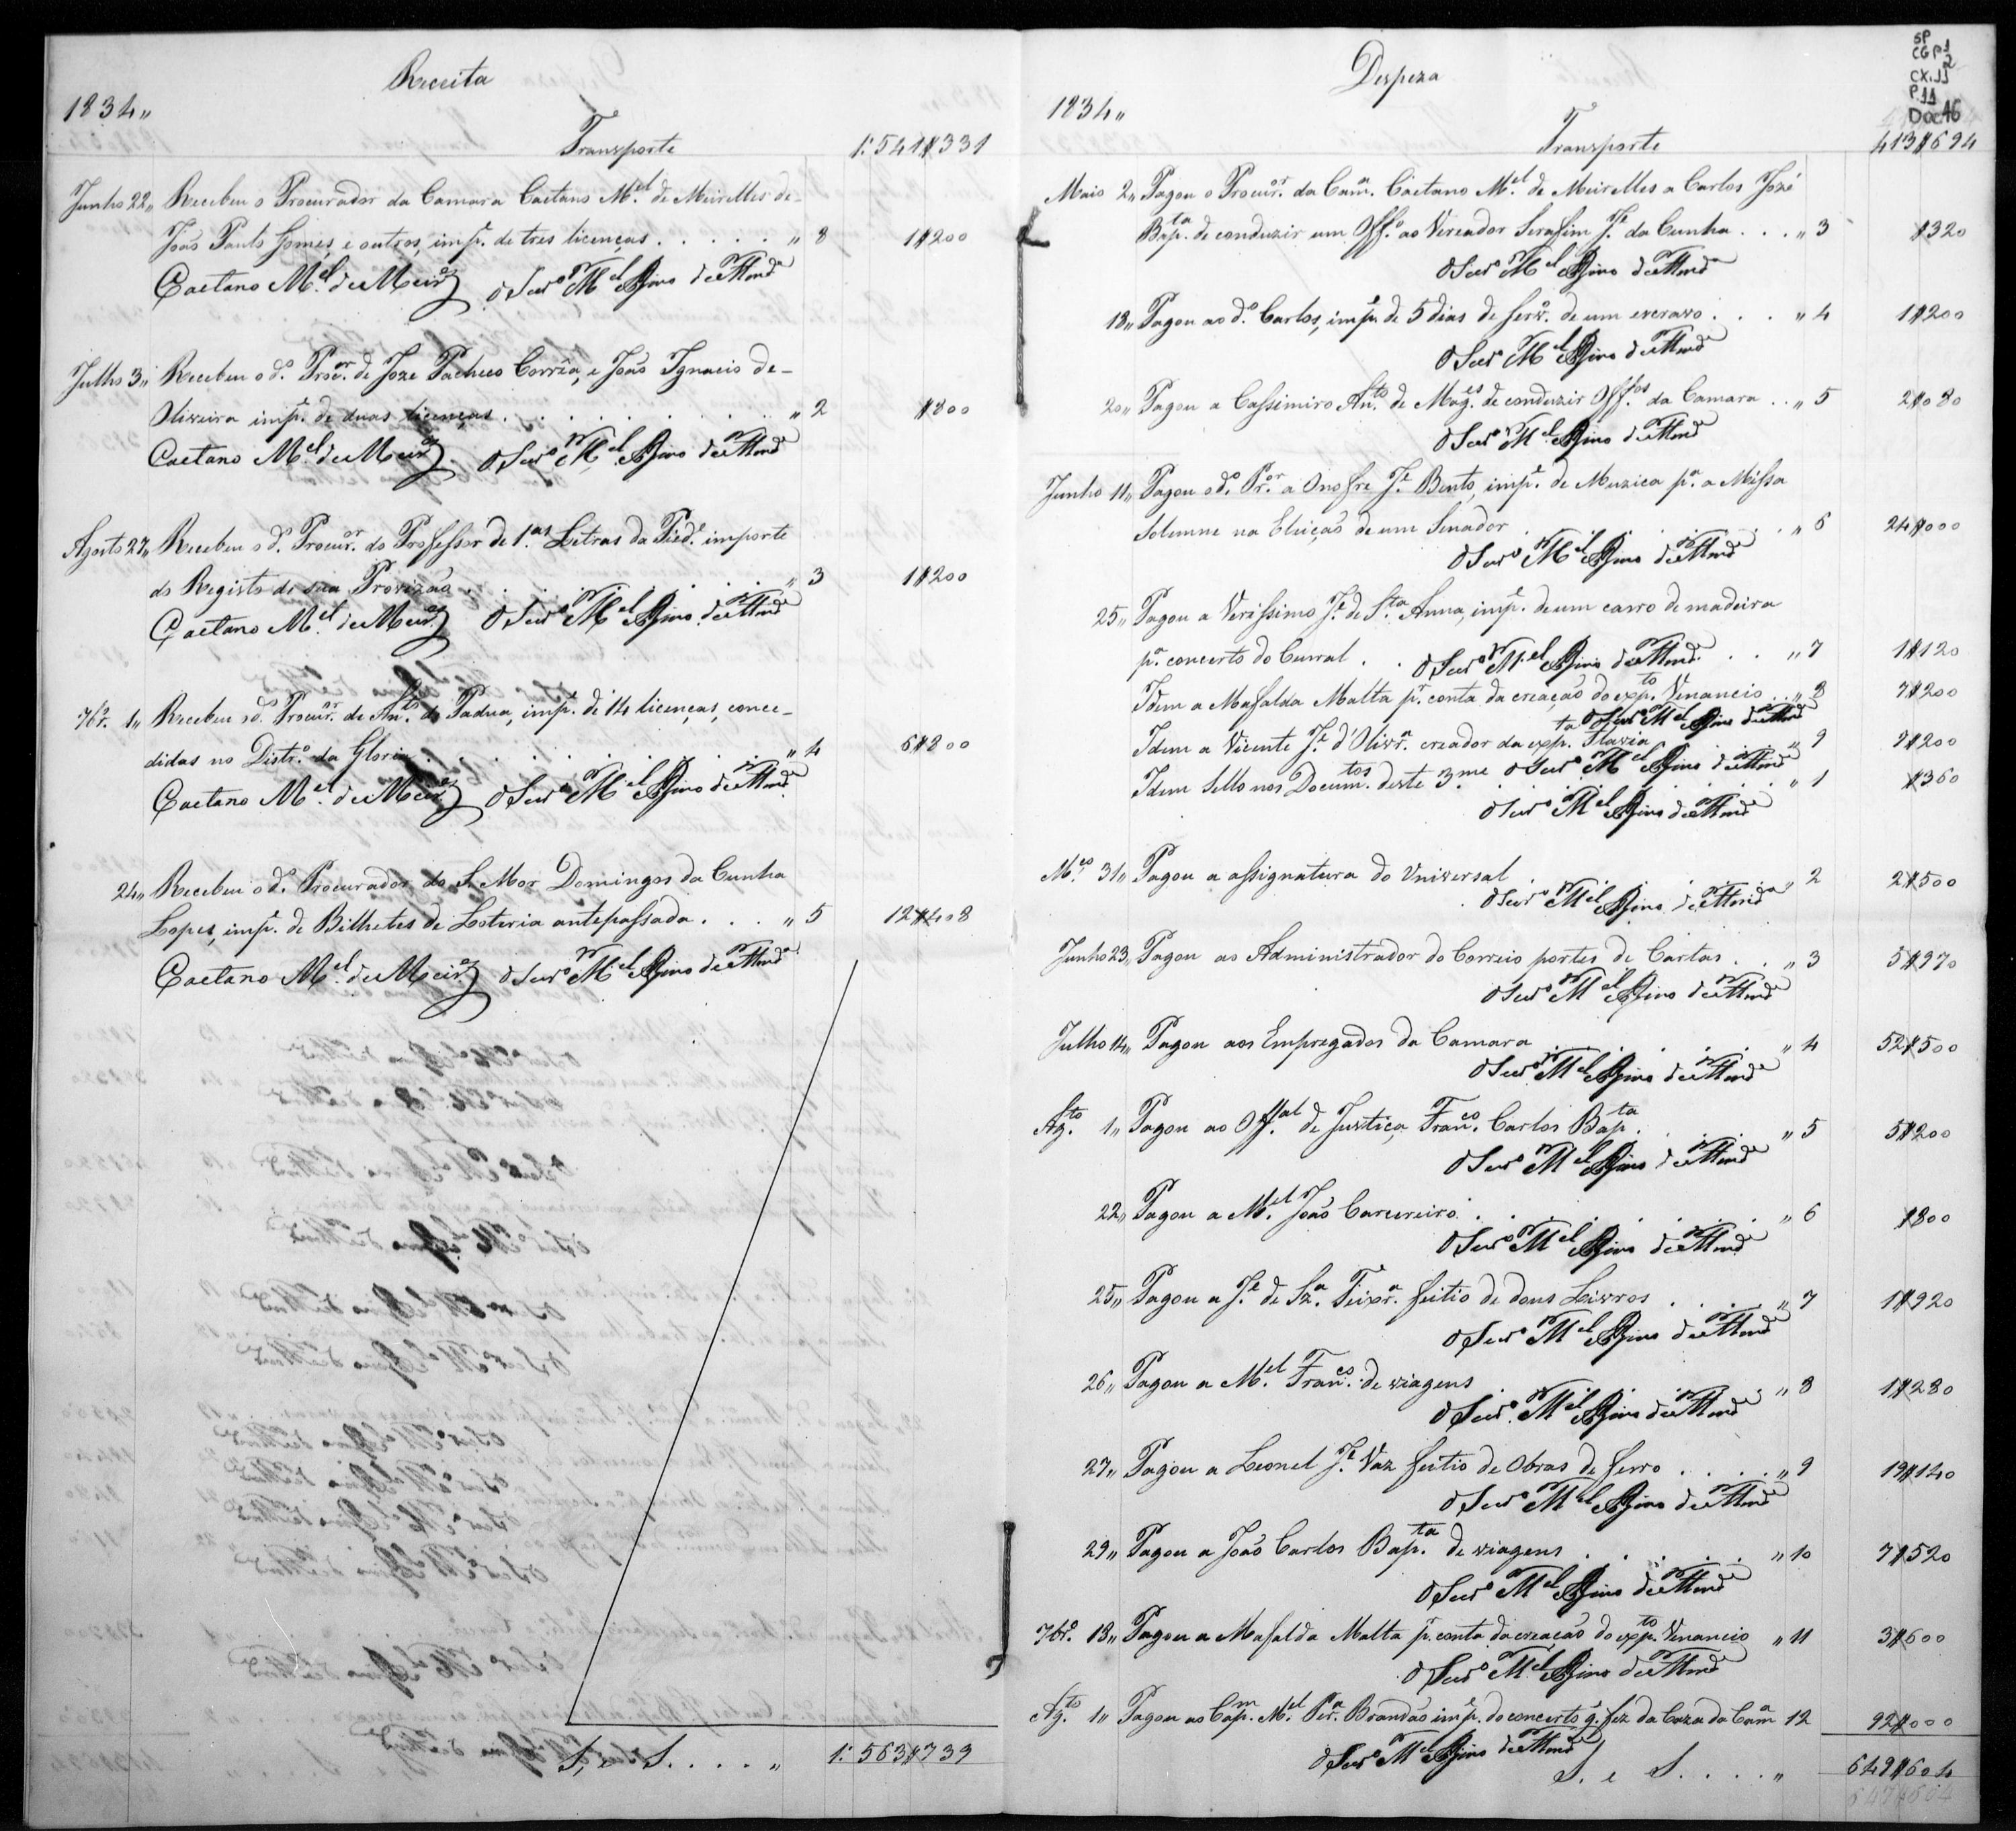 Receita
1834„
Transporte 1:541$331
Junho 22„ Recebeu o Procurador da Camara Caetano M.el de Meirelles de-
João Paulo Gomes, e outros, imp.e de tres licenças . . . . . „ 8 1$200
Caetano M.el de Meir.es O Secr.o M.el
Julho 3„ Recebeu o d.o Proc.or de Joze Pacheco Corrêa, e João Ignacio de-
Oliveira imp.e de duas licenças . . . . . . . . „ 2 $800
Caetano M.el de Meir.es O Secr.o M.el
Agosto 27„ Recebeu o d.o Procur.or do Professor de 1.as Letras da Pied.e importe
do Registo de sua Provizão . . . . . . . . „ 3 1$200
Caetano M.el de Meir.es O Secr.o M.el
7br.o 1„ Recebeu o d.o Procur.or de An.to de Padua, imp.e de 14 licenças, conce-
didas no Distr.o da Gloria . . . . . . . . „ 4 6$800
Caetano M.el de Meir.es O Secr.o M.el
24„ Recebeu o d.o Procurador do S. Mor Domingos da Cunha
Lopes, imp.e de Bilhetes de Loteria antepassada . . . „ 5 12$408
Caetano M.el de Meir.es O Secr.o M.el
S. e S. . . . . „ 1:563$739
SP
CGP1
2
CX.11
P.11
Doc 16
Despeza
1834„
Transporte 413$694
Maio 2„ Pagou o Procur.or da Cam.a Caetano M.el de Meirelles a Carlos Jozé
Bap.ta de conduzir um Off.o ao Vereador Serafim J.e da Cunha . . . „ 3 $320
O Secr.o M.el
18„ Pagou ao d.o Carlos, imp.e de 5 dias de serv.o de um escravo . . . „ 4 1$200
O Secr.o M.el
20„ Pagou a Cassimiro An.to de Mag.es de conduzir Off.os da Camara . . „ 5 2$080
O Secr.o M.el
Junho 11„ Pagou o d.o Pr.or a Onofre J.e Bento, imp.e de Muzica p.a a Missa
Solemne na Eleição de um Senador . . . . . . „ 6 24$000
O Secr.o M.el
25„ Pagou a Verissimo J.e de S.ta Anna, imp.e de um carro de madeira
p.a concerto do Curral . . O Secr.o M.el . . „ 7 1$120
Idem a Mafalda Malta p.r conta da creação do exp.to Venancio . . „ 8 7$200
O Secr.o M.el
Idem a Vicente J.e d'Oliv.ra creador da exp.ta Flavia „ 9 9$200
O Secr.o M.el
Idem Sello nos Docum.tos deste 3.me . . . . . „ 1 $360
O Secr.o M.el
M.ço 31„ Pagou a assignatura do Universal . . . . . „ 2 2$500
O Secr.o M.el
Junho 23„ Pagou ao Administrador do Correio portes de Cartas . . „ 3 5$970
O Secr.o M.el
Julho 14„ Pagou aos Empregados da Camara . . . . . „ 4 52$500
O Secr.o M.el
Ag.to 1„ Pagou ao Off.al de Justiça, Fran.co Carlos Bap.ta . . . . „ 5 5$200
O Secr.o M.el
22„ Pagou a M.el João Carcereiro . . . . . . „ 6 $800
O Secr.o M.el
25„ Pagou a J.e de Sz.a Teixr.a feitio de dous Livros . . . . „ 7 1$920
O Secr.o M.el
26„ Pagou a M.el Fran.co de viagens . . . . . „ 8 1$280
O Secr.o M.el
27„ Pagou a Leonel J.e Vaz feitio de Obras de ferro . . . . „ 9 19$140
O Secr.o M.el
29„ Pagou a João Carlos Bap.ta de viagens . . . . . „ 10 7$520
O Secr.o M.el
7br.o 18„ Pagou a Mafalda Malta p.r conta da creação do exp.to Venancio „ 11 3$600
O Secr.o M.el
Ag.to 1„ Pagou ao Cap.m M.el Per.a Brandão imp.e do concerto q. fez da Caza da Cam.a 12 92$000
O Secr.o M.el
S. e S. . . . . „ 649$604